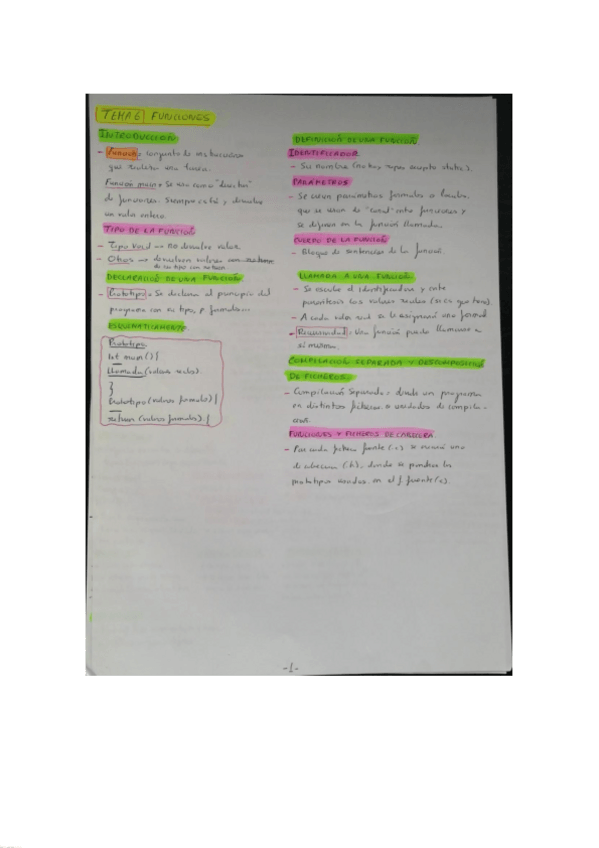 TEMA 6 FUNCIONES
INTRODUCCIÓN
- Función: conjunto de instrucciones
que realizan una tarea.
Función main: Se usa como "director"
de funciones. Siempre está y devuelve
un valor entero.
TIPO DE LA FUNCIÓN
- Tipo Void → no devuelve valor
- Otros → devuelven valores
de su tipo con return.
DECLARACIÓN DE UNA FUNCIÓN
- Prototipo: Se declara al principio del
programa con su tipo, p formales...
ESQUEMATICAMENTE
Prototipo
int main () {
Llamada (valores reales).
}
Prototipo (valores formales) {
return (valores formales). {
DEFINICIÓN DE UNA FUNCIÓN
IDENTIFICADOR
- Su nombre (no hay tipos excepto static).
PARAMETROS
- Se usan parámetros formales o locales,
que se usan de "canal" entre funciones y
se definen en la función llamada.
CUERPO DE LA FUNCIÓN
- Bloque de sentencias de la función.
LLAMADA A UNA FUNCIÓN
- Se escribe el identificador y entre
paréntesis los valores reales (si es que tiene).
- A cada valor real se le asignará uno formal
- Recursividad: Una función puede llamarse a
si misma.
COMPILACIÓN SEPARADA Y DESCOMPOSICIÓN
DE FICHEROS
- Compilación Separada: divide un programa
en distintos ficheros o unidades de compila-
ción.
FUNCIONES Y FICHEROS DE CABECERA
- Por cada fichero fuente (.c) se creará uno
de cabecera (.h), donde se pondrán los
prototipos usados en el f. fuente (.c).
-1-